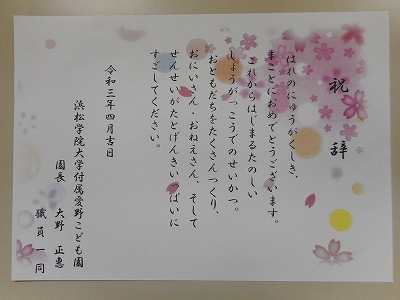 祝辞
はれのにゅうがくしき、
まことにおめでとうございます。
これからはじまるたのしい
しょうがっこうでのせいかつ。
おともだちをたくさんつくり、
おにいさん・おねえさん、そして
せんせいがたとげんきいっぱいに
すごしてください。
令和三年四月吉日
浜松学院大学付属愛野こども園
園長 大野 正恵
職員一同